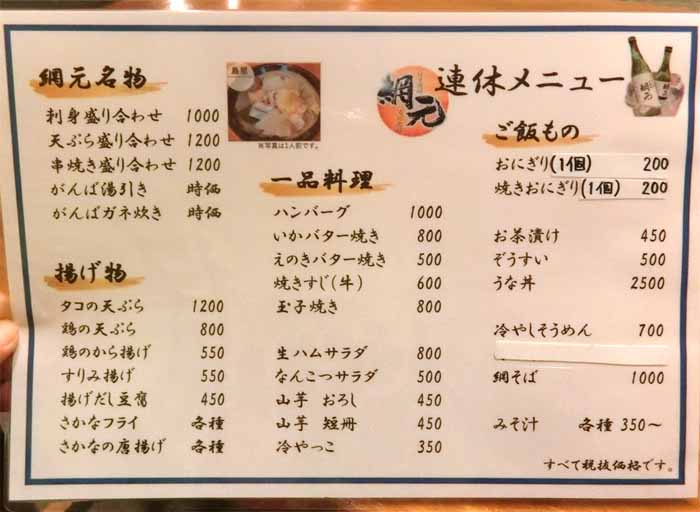 連休メニュー
網元
島屋
※写真は1人前です。
網元名物
刺身盛り合わせ 1000
天ぷら盛り合わせ 1200
串焼き盛り合わせ 1200
がんば湯引き 時価
がんばガネ炊き 時価
揚げ物
タコの天ぷら 1200
鶏の天ぷら 800
鶏のから揚げ 550
すりみ揚げ 550
揚げだし豆腐 450
さかなフライ 各種
さかなの唐揚げ 各種
一品料理
ハンバーグ 1000
いかバター焼き 800
えのきバター焼き 500
焼きすじ(牛) 600
玉子焼き 800
生ハムサラダ 800
なんこつサラダ 500
山芋 おろし 450
山芋 短冊 450
冷やっこ 350
ご飯もの
おにぎり(1個) 200
焼きおにぎり(1個) 200
お茶漬け 450
ぞうすい 500
うな丼 2500
冷やしそうめん 700
網そば 1000
みそ汁 各種 350～
すべて税抜価格です。